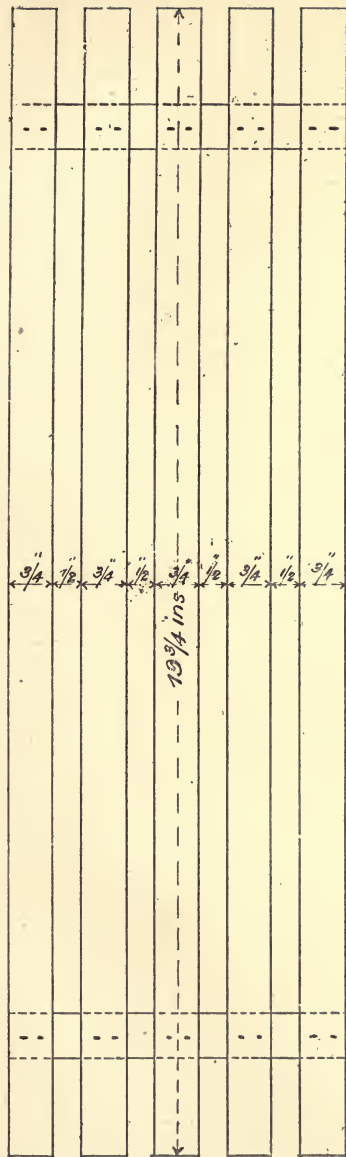 3/4" 1/2" 3/4" 1/2" 3/4" 1/2" 3/4" 1/2" 3/4"
19 3/4 ins